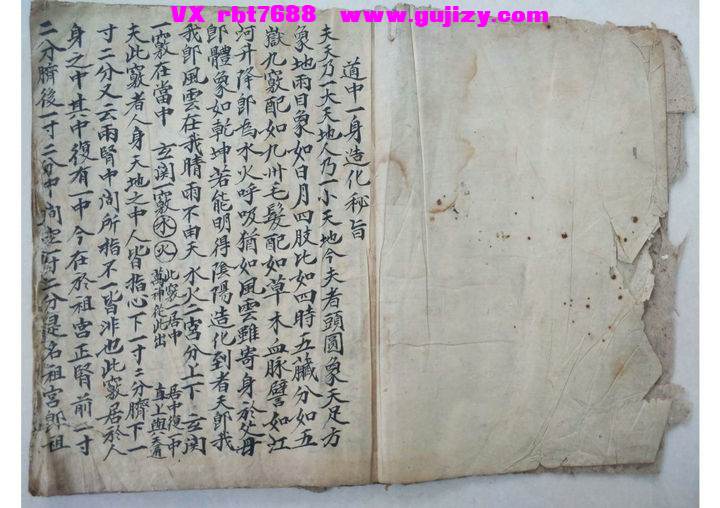 VX rbt7688 www.gujizy.com
道中一身造化秘旨
夫天乃一大天地人乃一小天地今夫者頭圓象天足方
象地兩目象如日月四肢比如四時五臟分如五
嶽九竅配如九州毛髮配如草木血脉譬如江
河升降即為水火呼吸猶如風雲雖寄身於父母
即體象如乾坤若能明得陰陽造化到者天即我
我即風雲在我晴雨不由天水火二宮分上下玄関
一竅在當中 玄関一竅水火此竅居中萬神從此出 居中復一中直上與天通
夫此竅者人身天地之中人皆指心下一寸二分臍下一
寸二分又云兩腎中間所指不一皆非也此竅居於人
身之中其中復有一中今在於祖宮正腎前一寸
二分臍後一寸二分中間二分是名祖宮即祖